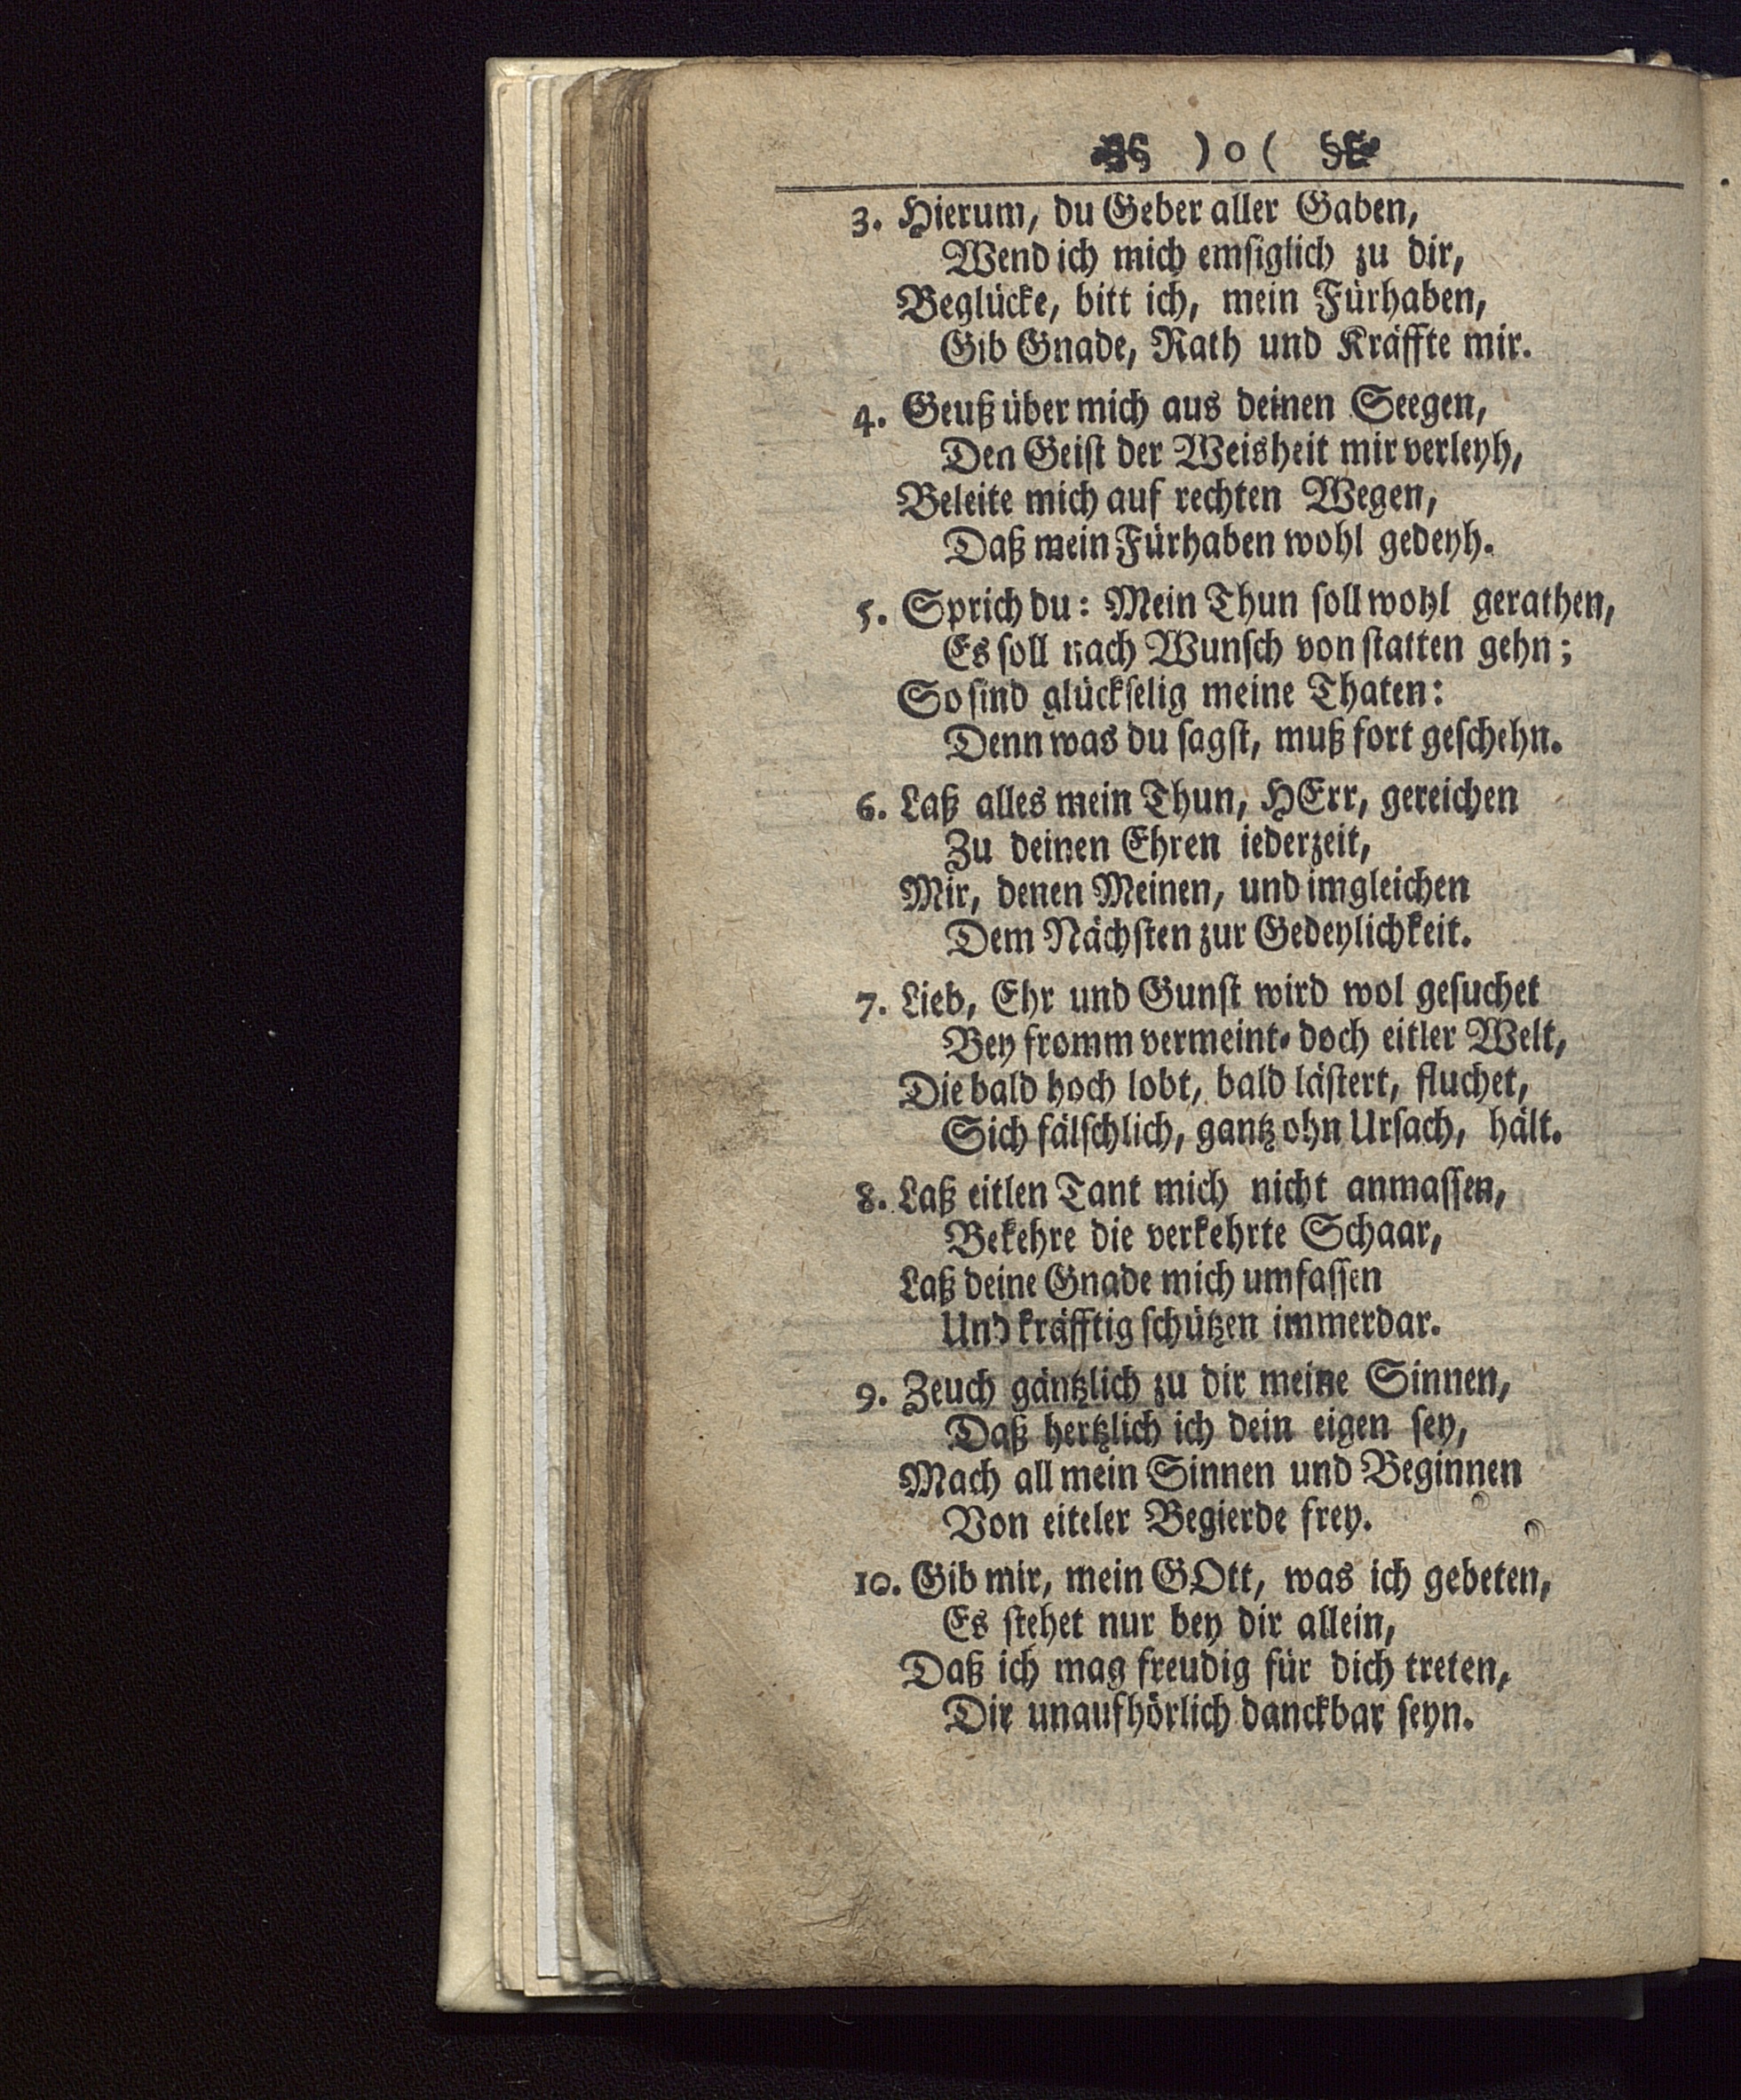 ) o (
3. Hierum, du Geber aller Gaben,
Wend ich mich emſiglich zu dir,
Beglücke, bitt ich, mein Fürhaben,
Gib Gnade, Rath und Kräffte mir.
4. Geuß über mich aus deinen Seegen,
Den Geiſt der Weisheit mir verleyh,
Beleite mich auf rechten Wegen,
Daß mein Fürhaben wohl gedeyh.
5. Sprich du: Mein Thun ſoll wohl gerathen,
Es ſoll nach Wunſch von ſtatten gehn;
So ſind glückſelig meine Thaten:
Denn was du ſagſt, muß fort geſchehn.
6. Laß alles mein Thun, HErr, gereichen
Zu deinen Ehren iederzeit,
Mir, denen Meinen, und imgleichen
Dem Nächſten zur Gedeylichkeit.
7. Lieb, Ehr und Gunſt wird wol geſuchet
Bey fromm vermeint- doch eitler Welt,
Die bald hoch lobt, bald läſtert, fluchet,
Sich fälſchlich, gantz ohn Urſach, hält.
8. Laß eitlen Tant mich nicht anmaſſen,
Bekehre die verkehrte Schaar,
Laß deine Gnade mich umfaſſen
Und kräfftig ſchützen immerdar.
9. Zeuch gäntzlich zu dir meine Sinnen,
Daß hertzlich ich dein eigen ſey,
Mach all mein Sinnen und Beginnen
Von eiteler Begierde frey.
10. Gib mir, mein GOtt, was ich gebeten,
Es ſtehet nur bey dir allein,
Daß ich mag freudig für dich treten,
Dir unaufhörlich danckbar ſeyn.